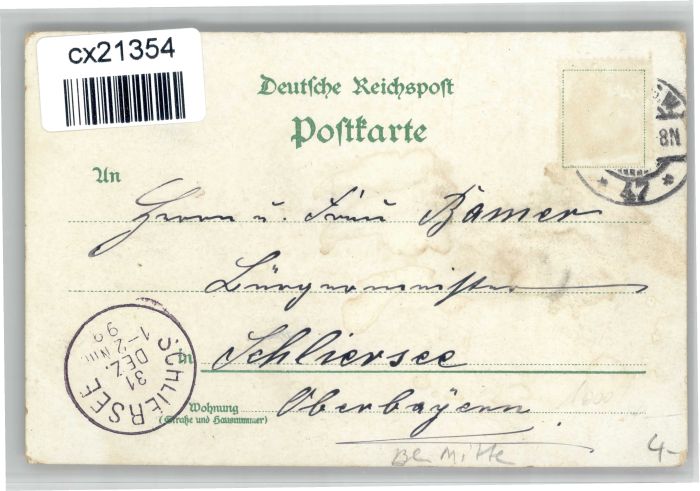 cx21354
Deutsche Reichspost
Postkarte
8N
* 47 *
An
Herrn u. Frau Bamer
Bürgermeister
SCHLIERSEE
31
DEZ.
1-2 Nm
99
in Schliersee
Wohnung Oberbayern
(Straße und Hausnummer)
Mitte
4-